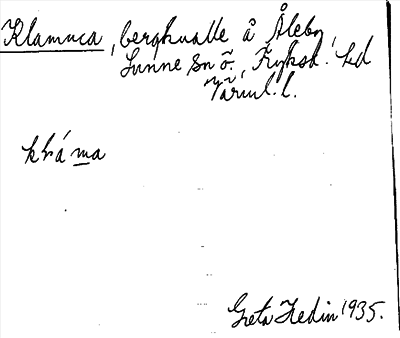 Klamma, bergkulle å Åleby,
Sunne sn ö. Fryksd. hd
Värml. l.
klráma
Greta Hedin 1935.